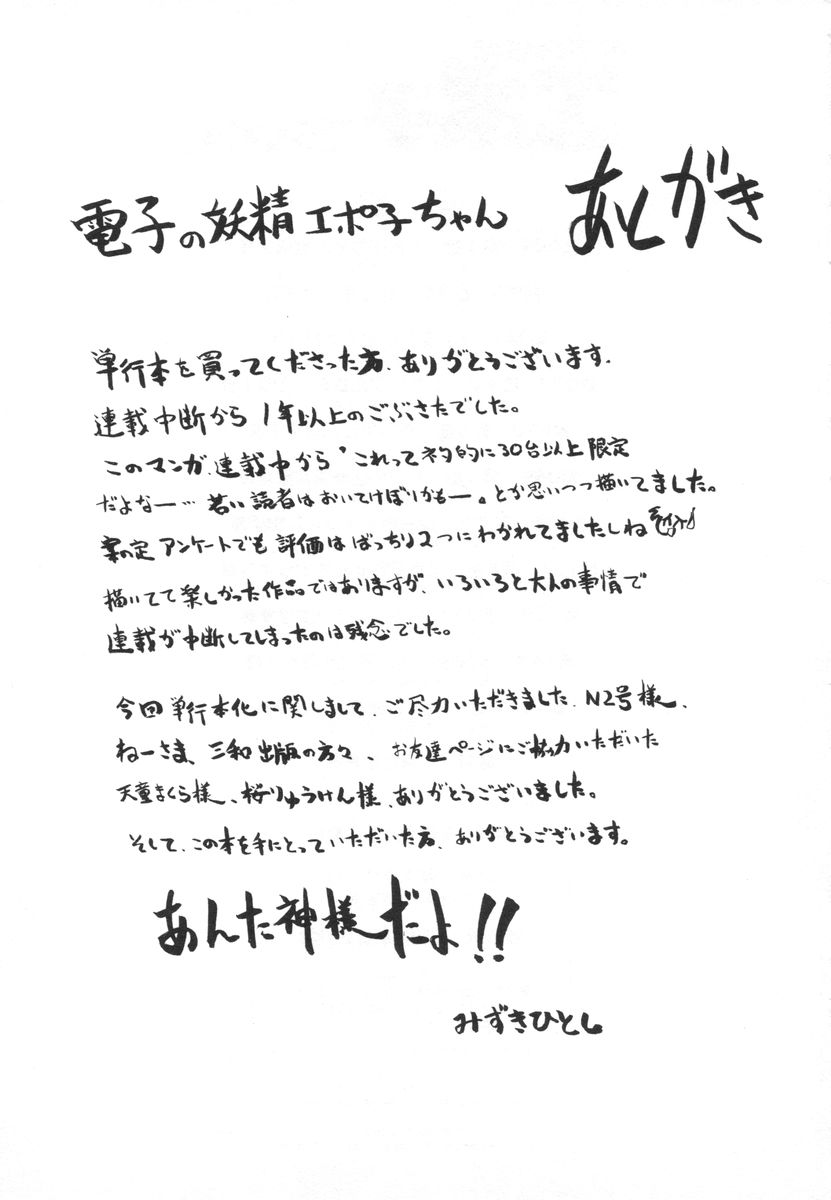 電子の妖精エポ子ちゃん あとがき
単行本を買ってくださった方、ありがとうございます。
連載中断から1年以上のごぶさたでした。
このマンガ、連載中から"これってネタ的に30台以上限定
だよなー… 若い読者はおいてけぼりかもー。とか思いつつ描いてました。
案の定アンケートでも評価はばっちり2つにわかれてましたしね
描いてて楽しかった作品ではありますが、いろいろと大人の事情で
連載が中断してしまったのは残念でした。
今回単行本化に関しまして、ご尽力いただきました、N2号様、
ねーさま、三和出版の方々、お友達ページにご協力いただいた
天童まくら様、桜りゅうけん様、ありがとうございました。
そして、この本を手にとっていただいた方、ありがとうございます。
あんた神様だよ!!
みずきひとし